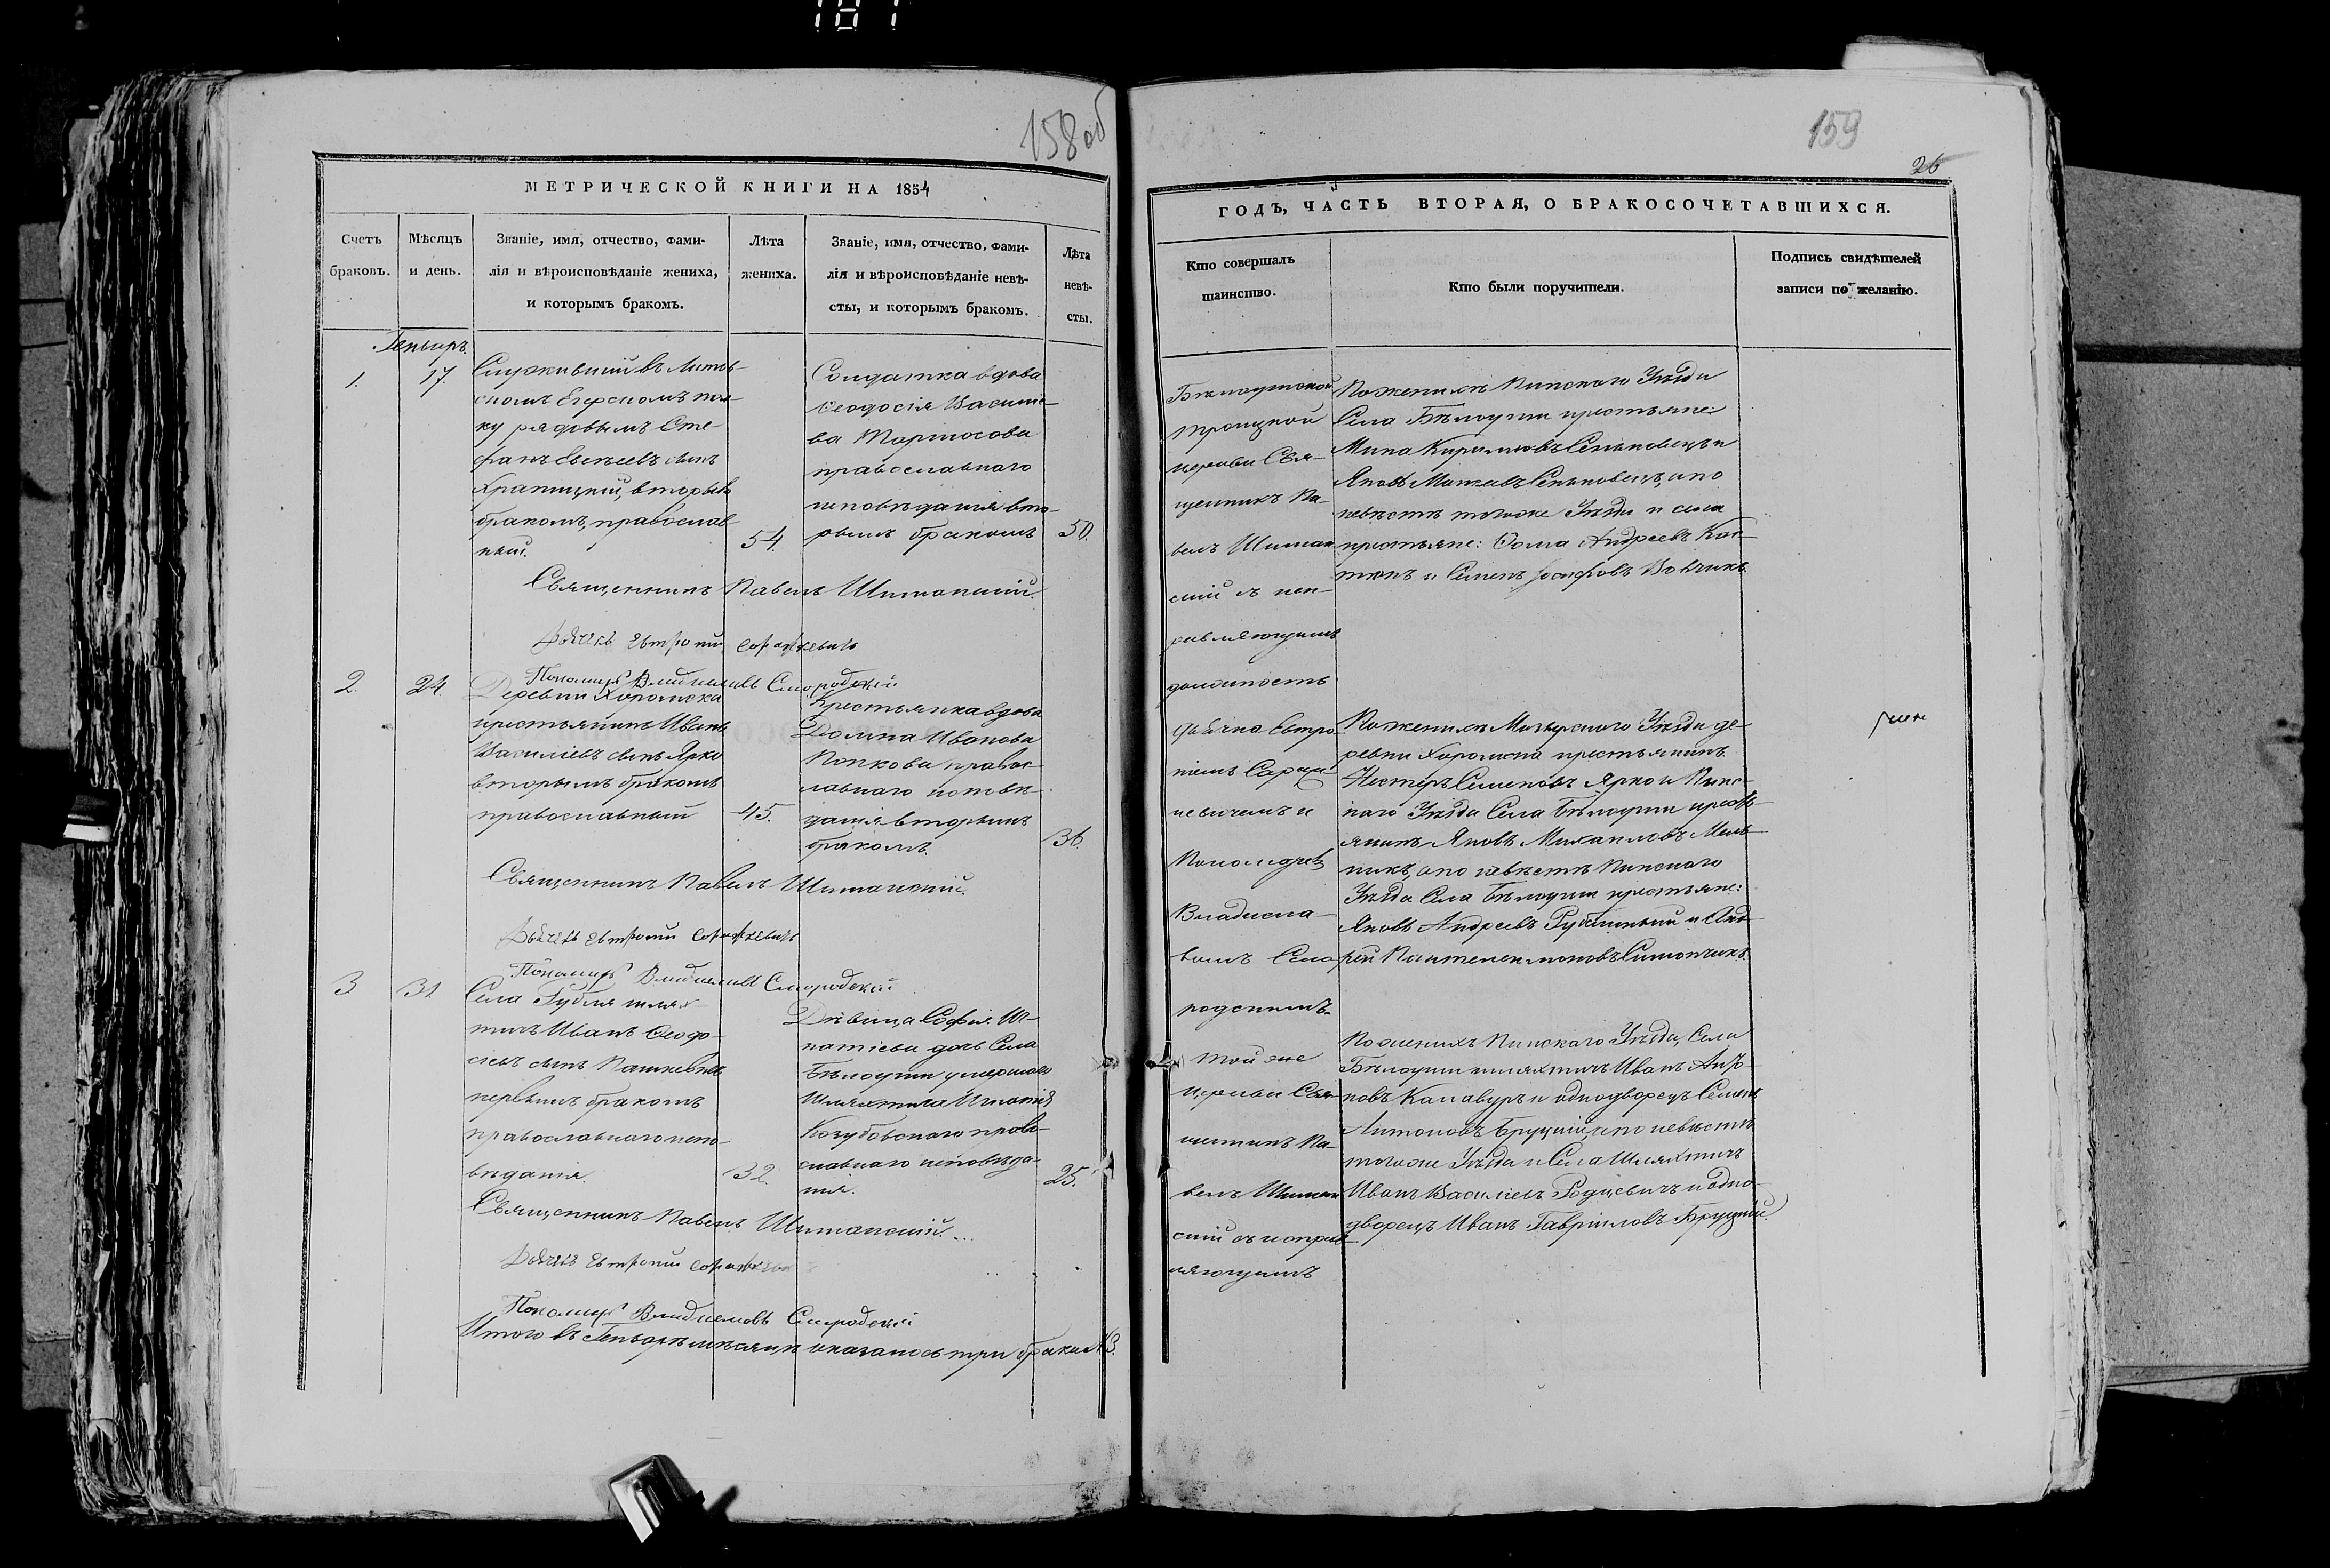 187
158 об
МЕТРИЧЕСКОЙ КНИГИ НА 1854
Счетъ браковъ.
Мѣсяцъ и день.
Званіе, имя, отчество, фами-
лія и вѣроисповѣданіе жениха,
и которымъ бракомъ.
Лѣта жениха.
Званіе, имя, отчество, фами-
лія и вѣроисповѣданіе невѣ-
сты, и которымъ бракомъ.
Лѣта невѣ-
сты.
Генварь.
1.
17.
Служившій въ Литов-
скомъ Егерскомъ пол-
ку рядовымъ Сте-
фанъ сынъ
вторымъ
бракомъ, православ-
ный.
54.
Солдатка вдова
Ѳеодосія Василіе-
ва
православнаго
исповѣданія вто-
рымъ бракомъ
50.
Священникъ Павелъ Шиманскій.
Дьячекъ Евтропій
Пономарь Владиславъ Смородскій
2.
24.
Деревни Хоромска
крестьянинъ Иванъ
Василіевъ сынъ Ярко
вторымъ бракомъ
православный
45.
Крестьянка вдова
Домна Иванова
Попкова правос-
лавнаго исповѣ-
данія вторымъ
бракомъ.
36.
Священникъ Павелъ Шиманскій.
Дьячекъ Евтропій
Пономарь Владиславъ Смородскій
3
31
Села шлях-
тичъ Иванъ Ѳеодо-
сіевъ сынъ Пашкевичъ
первымъ бракомъ
православнаго испо-
вѣданія.
32.
Дѣвица Софія Иг-
натіева дочь Села
Бѣлоуши умершаго
Шляхтича Игнатія
Козубовскаго право-
славнаго исповѣда-
нія.
25.
Священникъ Павелъ Шиманскій.
Дьячекъ Евтропій
Пономарь Владиславъ Смородскій
Итого въ Генварѣ мѣсяцѣ оказалось три брака 3.
159
26
ГОДЪ, ЧАСТЬ ВТОРАЯ, О БРАКОСОЧЕТАВШИХСЯ.
Кто совершалъ
таинство.
Кто были поручители.
Подпись свидѣтелей
записи по желанію.
Бѣлоушской
Троицкой
церкви Свя-
щенникъ Па-
велъ Шиман-
скій съ исп-
равляющимъ
должность
дьячка Евтро-
піемъ
и
Пономаремъ
Владисла-
вомъ Смо-
родскимъ.
По женихѣ Пинскаго Уѣзда
Села Бѣлоуши крестьяне:
Мина Кириловъ Сеньковецъ и
Яковъ Сеньковецъ, а по
невѣстѣ тогоже Уѣзда и села
крестьяне: Ѳома Андреевъ
и Семенъ Іосифовъ
По женихѣ Мозырскаго Уѣзда де-
ревни Хоромска крестьянинъ
Несторъ Семеновъ Ярко и Пинс-
каго Уѣзда Села Бѣлоуши кресть-
янинъ Яковъ Михаиловъ Мель-
никъ, а по невѣстѣ Пинскаго
Уѣзда Села Бѣлоуши крестьяне:
Яковъ Андреевъ и Анд-
рей Пантелеимоновъ Симончикъ.
Той же
церкви Свя-
щенникъ Па-
велъ Шиман-
скій съ исправ-
ляющимъ
По женихѣ Пинскаго Уѣзда, Села
Бѣлоуши шляхтичъ Иванъ
и однодворецъ Семенъ
Антоновъ Бруцкій, а по невѣстѣ
тогоже Уѣзда и Села Шляхтичъ
Иванъ Василіевъ Родцевичъ и одно-
дворецъ Иванъ Гавріиловъ Бруцкій.